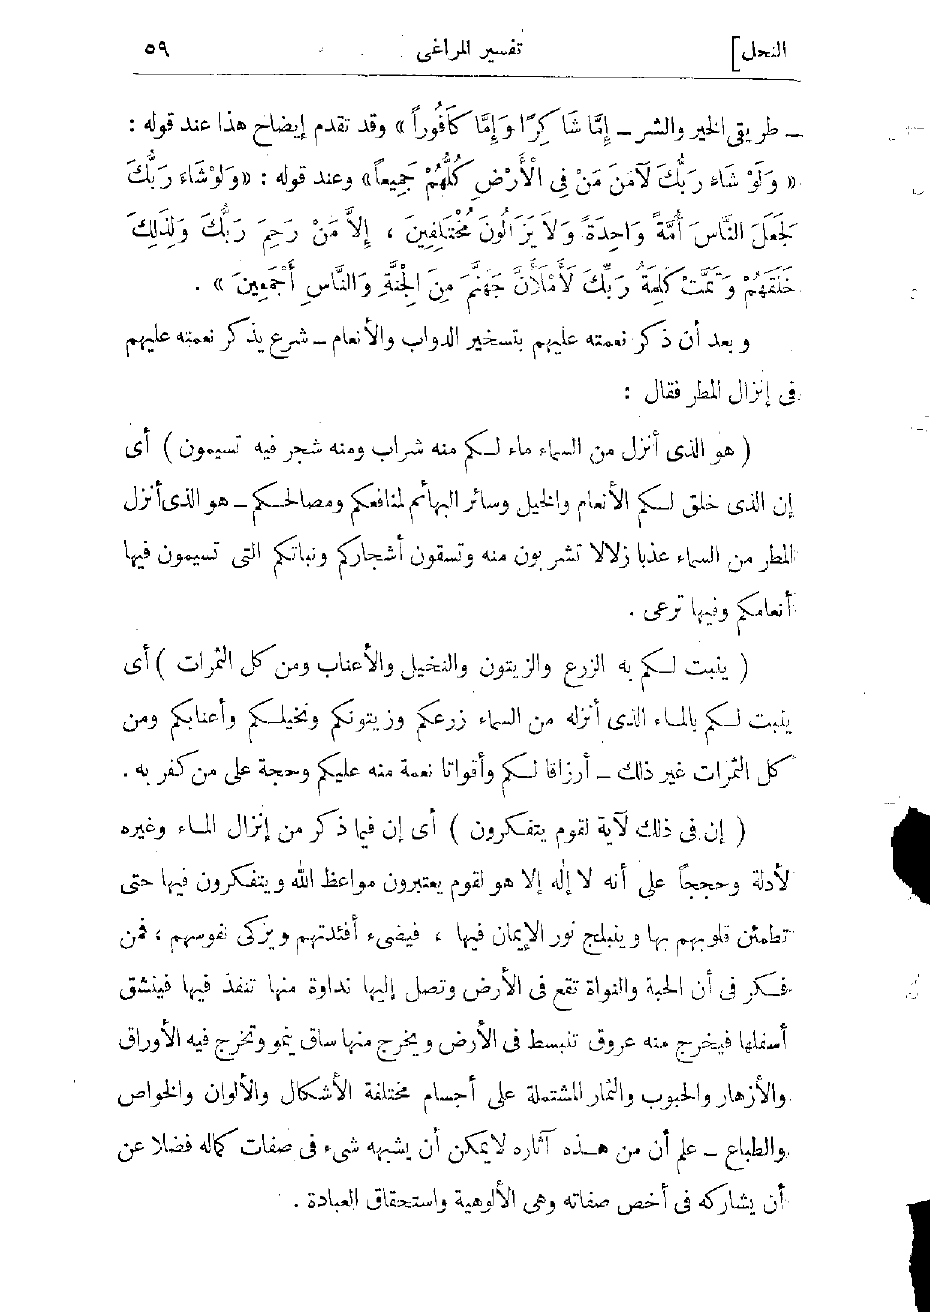 النحل] تفسير المراغى ٥٩
ــ طريقى الخير والشر ــ إِمَّا شَاكِرًا وَإِمَّا كَافُوراً » وقد تقدم إيضاح هذا عند قوله :
« وَلَوْ شَاءَ رَبُّكَ لَآمَنَ مَنْ فِى الْأَرْضِ كُلُّهُمْ جَمِيعاً» وعند قوله : «وَلَوْ شَاءَ رَبُّكَ
لَجَعَلَ النَّاسَ أُمَّةً وَاحِدَةً وَلاَ يَزَالُونَ مُخْتَلِفِينَ ، إِلاَّ مَنْ رَحِمَ رَبُّكَ وَلِذَلِكَ
خَلَقَهُمْ وَتَمَّتْ كَلِمَةُ رَبِّكَ لَأَمْلَأَنَّ جَهَنَّمَ مِنَ الْجِنَّةِ وَالنَّاسِ أَجْمَعِينَ » .
وبعد أن ذكر نعمته عليهم بتسخير الدواب والأنعام ــ شرع يذكر نعمته عليهم
فى إنزال المطر فقال :
( هو الذى أنزل من السماء ماء لكم منه شراب ومنه شجر فيه تسيمون ) أى
إن الذى خلق لكم الأنعام والخيل وسائر البهائم لمنافعكم ومصالحكم ــ هو الذى أنزل
المطر من السماء عذبا زلالا تشربون منه وتسقون أشجاركم ونباتكم التى تسيمون فيها
أنعامكم وفيها ترعى .
( ينبت لكم به الزرع والزيتون والنخيل والأعناب ومن كل الثمرات ) أى
ينبت لكم بالماء الذى أنزله من السماء زرعكم وزيتونكم ونخيلكم وأعنابكم ومن
كل الثمرات غير ذلك ــ أرزاقا لكم وأقواتا نعمة منه عليكم وحجة على من كفر به .
( إن فى ذلك لآية لقوم يتفكرون ) أى إن فيما ذكر من إنزال الماء وغيره
لأدلة وحججاً على أنه لا إله إلا هو لقوم يعتبرون مواعظ الله ويتفكرون فيها حتى
تطمئن قلوبهم بها وينبلج نور الإيمان فيها ، فيضىء أفئدتهم ويزكى نفوسهم ، فمن
فكر فى أن الحبة والنواة تقع فى الأرض وتصل إليها نداوة منها تنفذ فيها فينشق
أسفلها فيخرج منه عروق تنبسط فى الأرض ويخرج منها ساق ينمو وتخرج فيه الأوراق
والأزهار والحبوب والثمار المشتملة على أجسام مختلفة الأشكال والألوان والخواص
والطباع ــ علم أن من هذه آثاره لا يمكن أن يشبهه شىء فى صفات كماله فضلا عن
أن يشاركه فى أخص صفاته وهى الألوهية واستحقاق العبادة .